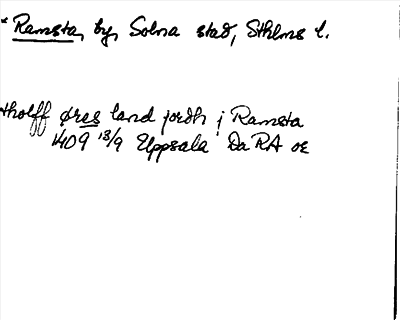 * Ramsta, by, Solna stad, Sthlms l.
tholff øres land jordh j Ramsta
1409 13/9 Uppsala DaRA or